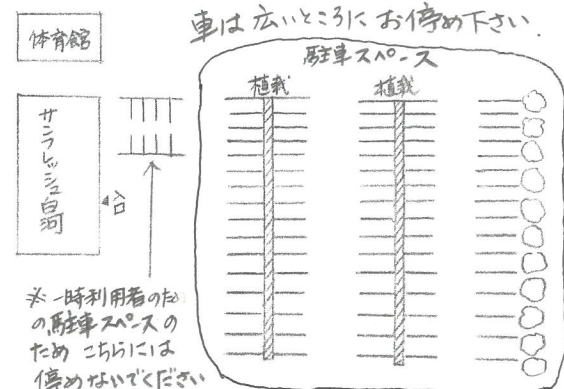 車は広いところにお停め下さい.
体育館
駐車スペース
植栽
植栽
サンフレッシュ白河
入口
※一時利用者のため
の駐車スペースの
ため こちらには
停めないでください